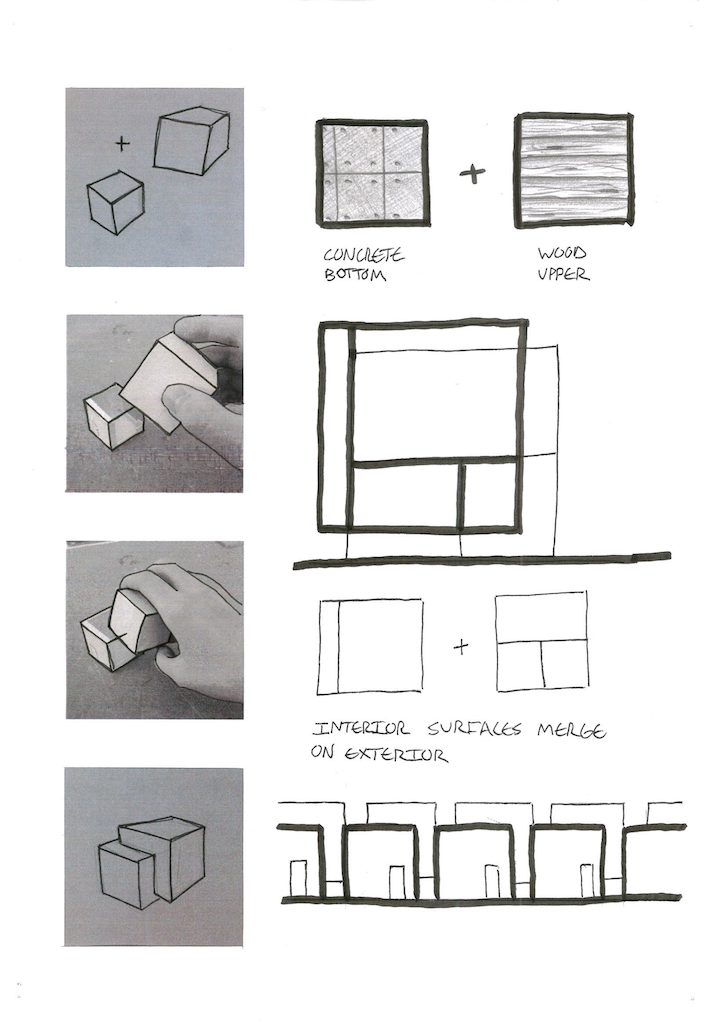 CONCRETE
BOTTOM
WOOD
UPPER
INTERIOR SURFACES MERGE
ON EXTERIOR